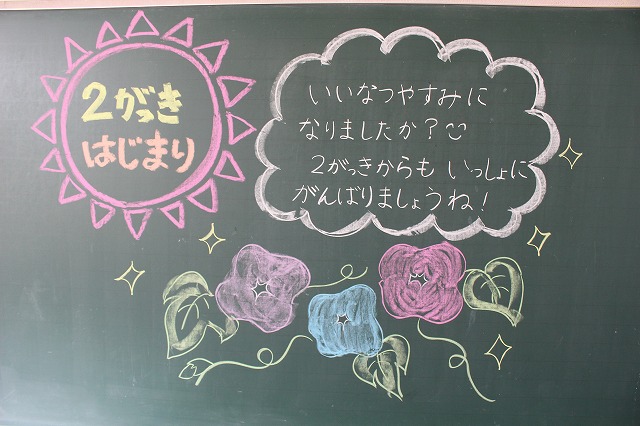 2がっき
はじまり
いいなつやすみに
なりましたか？
2がっきからも いっしょに
がんばりましょうね！